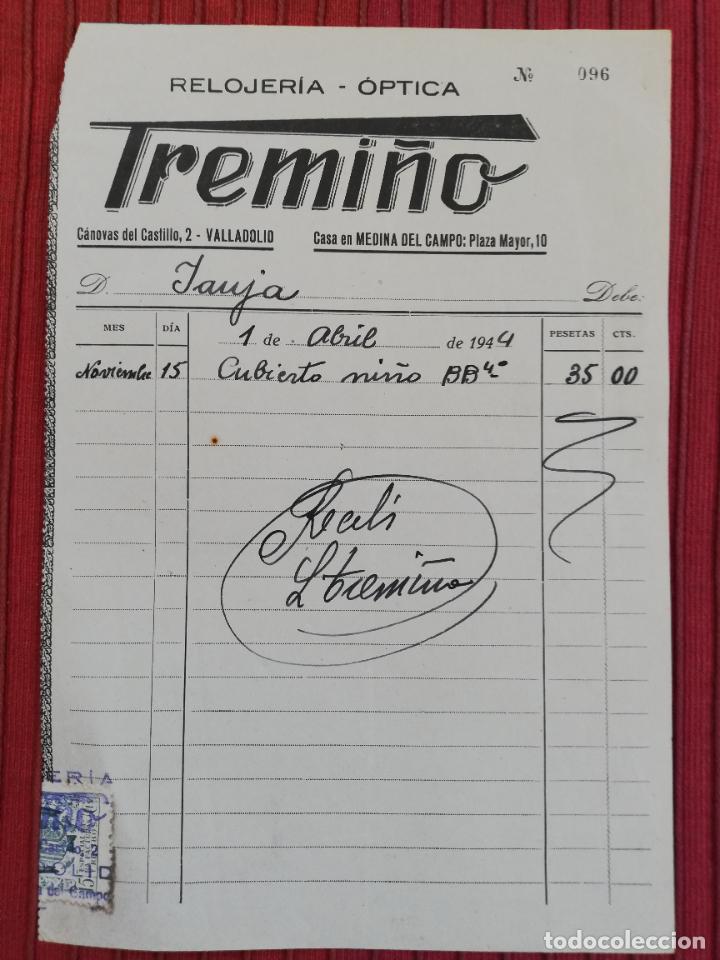 Nº 096
RELOJERÍA - ÓPTICA
Tremiño
Cánovas del Castillo, 2 - VALLADOLID Casa en MEDINA DEL CAMPO: Plaza Mayor, 10
D. Tauja Debe:
MES DÍA 1 de Abril de 1944 PESETAS CTS.
Noviembre 15 Cubierto niño 35 00
Recibí
L Tremiño
ERÍA
OLID
del Campo
todocoleccion.net